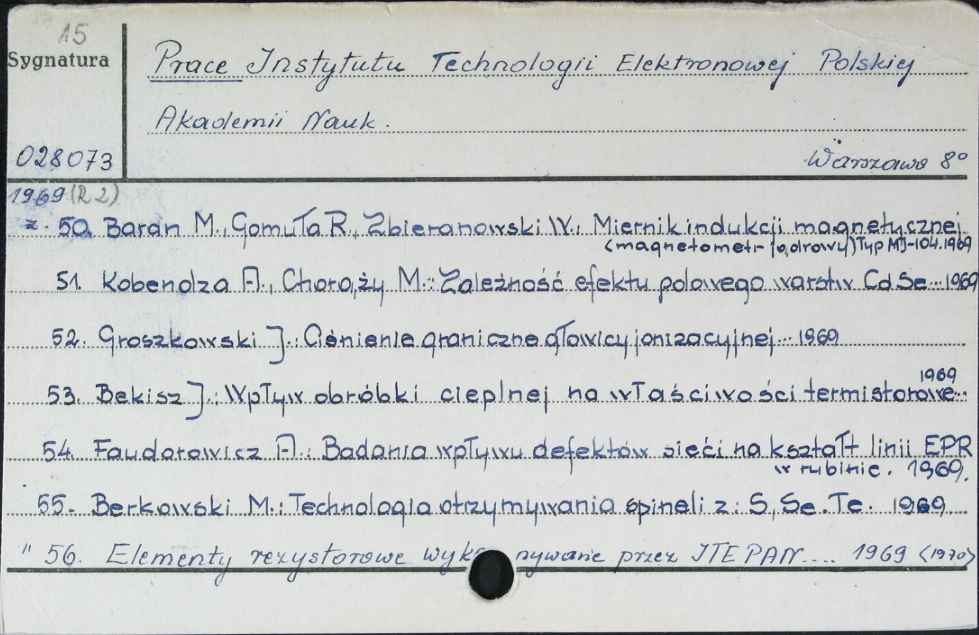 15
Sygnatura
Prace Instytutu Technologii Elektronowej Polskiej
Akademii Nauk.
028073
Warszawa 8°
1969 (R 2)
z. 50. Baran M., Gomuła R., Zbieranowski W., Miernik indukcji magnetycznej
(magnetometr jądrowy) Typ MJ-104. 1969
51. Kobendza A., Chorąży M.: Zależność efektu polowego warstw CdSe... 1969
52. Groszkowski J.: Ciśnienie graniczne głowicy jonizacyjnej... 1969
1969
53. Bekisz J.: Wpływ obróbki cieplnej na właściwości termistorowe...
54. Faudorowicz A.: Badania wpływu defektów sieci na kształt linii EPR
w rubinie. 1969.
55. Berkowski M.: Technologia otrzymywania spineli z: S, Se. Te. 1969
" 56. Elementy rezystorowe wyko nywane przez ITEPAN.... 1969 <1970>